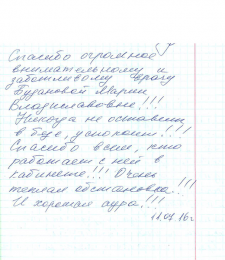 Спасибо огромное
внимательному и
заботливому врачу
Будановой Марии
Владиславовне!!!
Никогда не оставит
в беде, успокоит!!!!
Спасибо всем, кто
работает с ней в
кабинете!!! Очень
теплая обстановка!!!
И хорошая аура!!!
11.07.16г